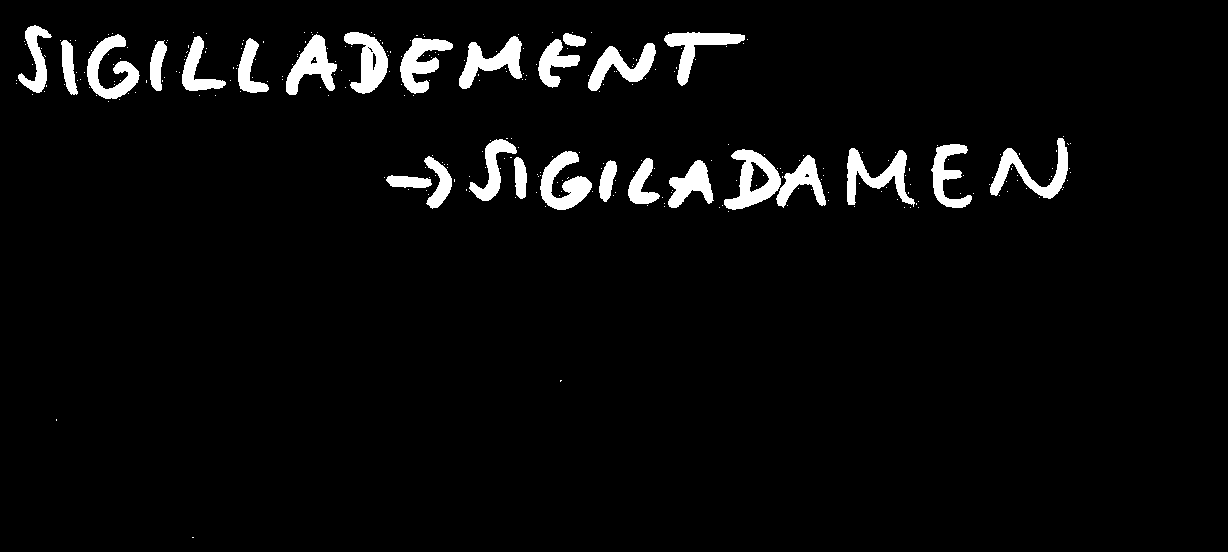 SIGILLADEMENT
→SIGILADAMEN